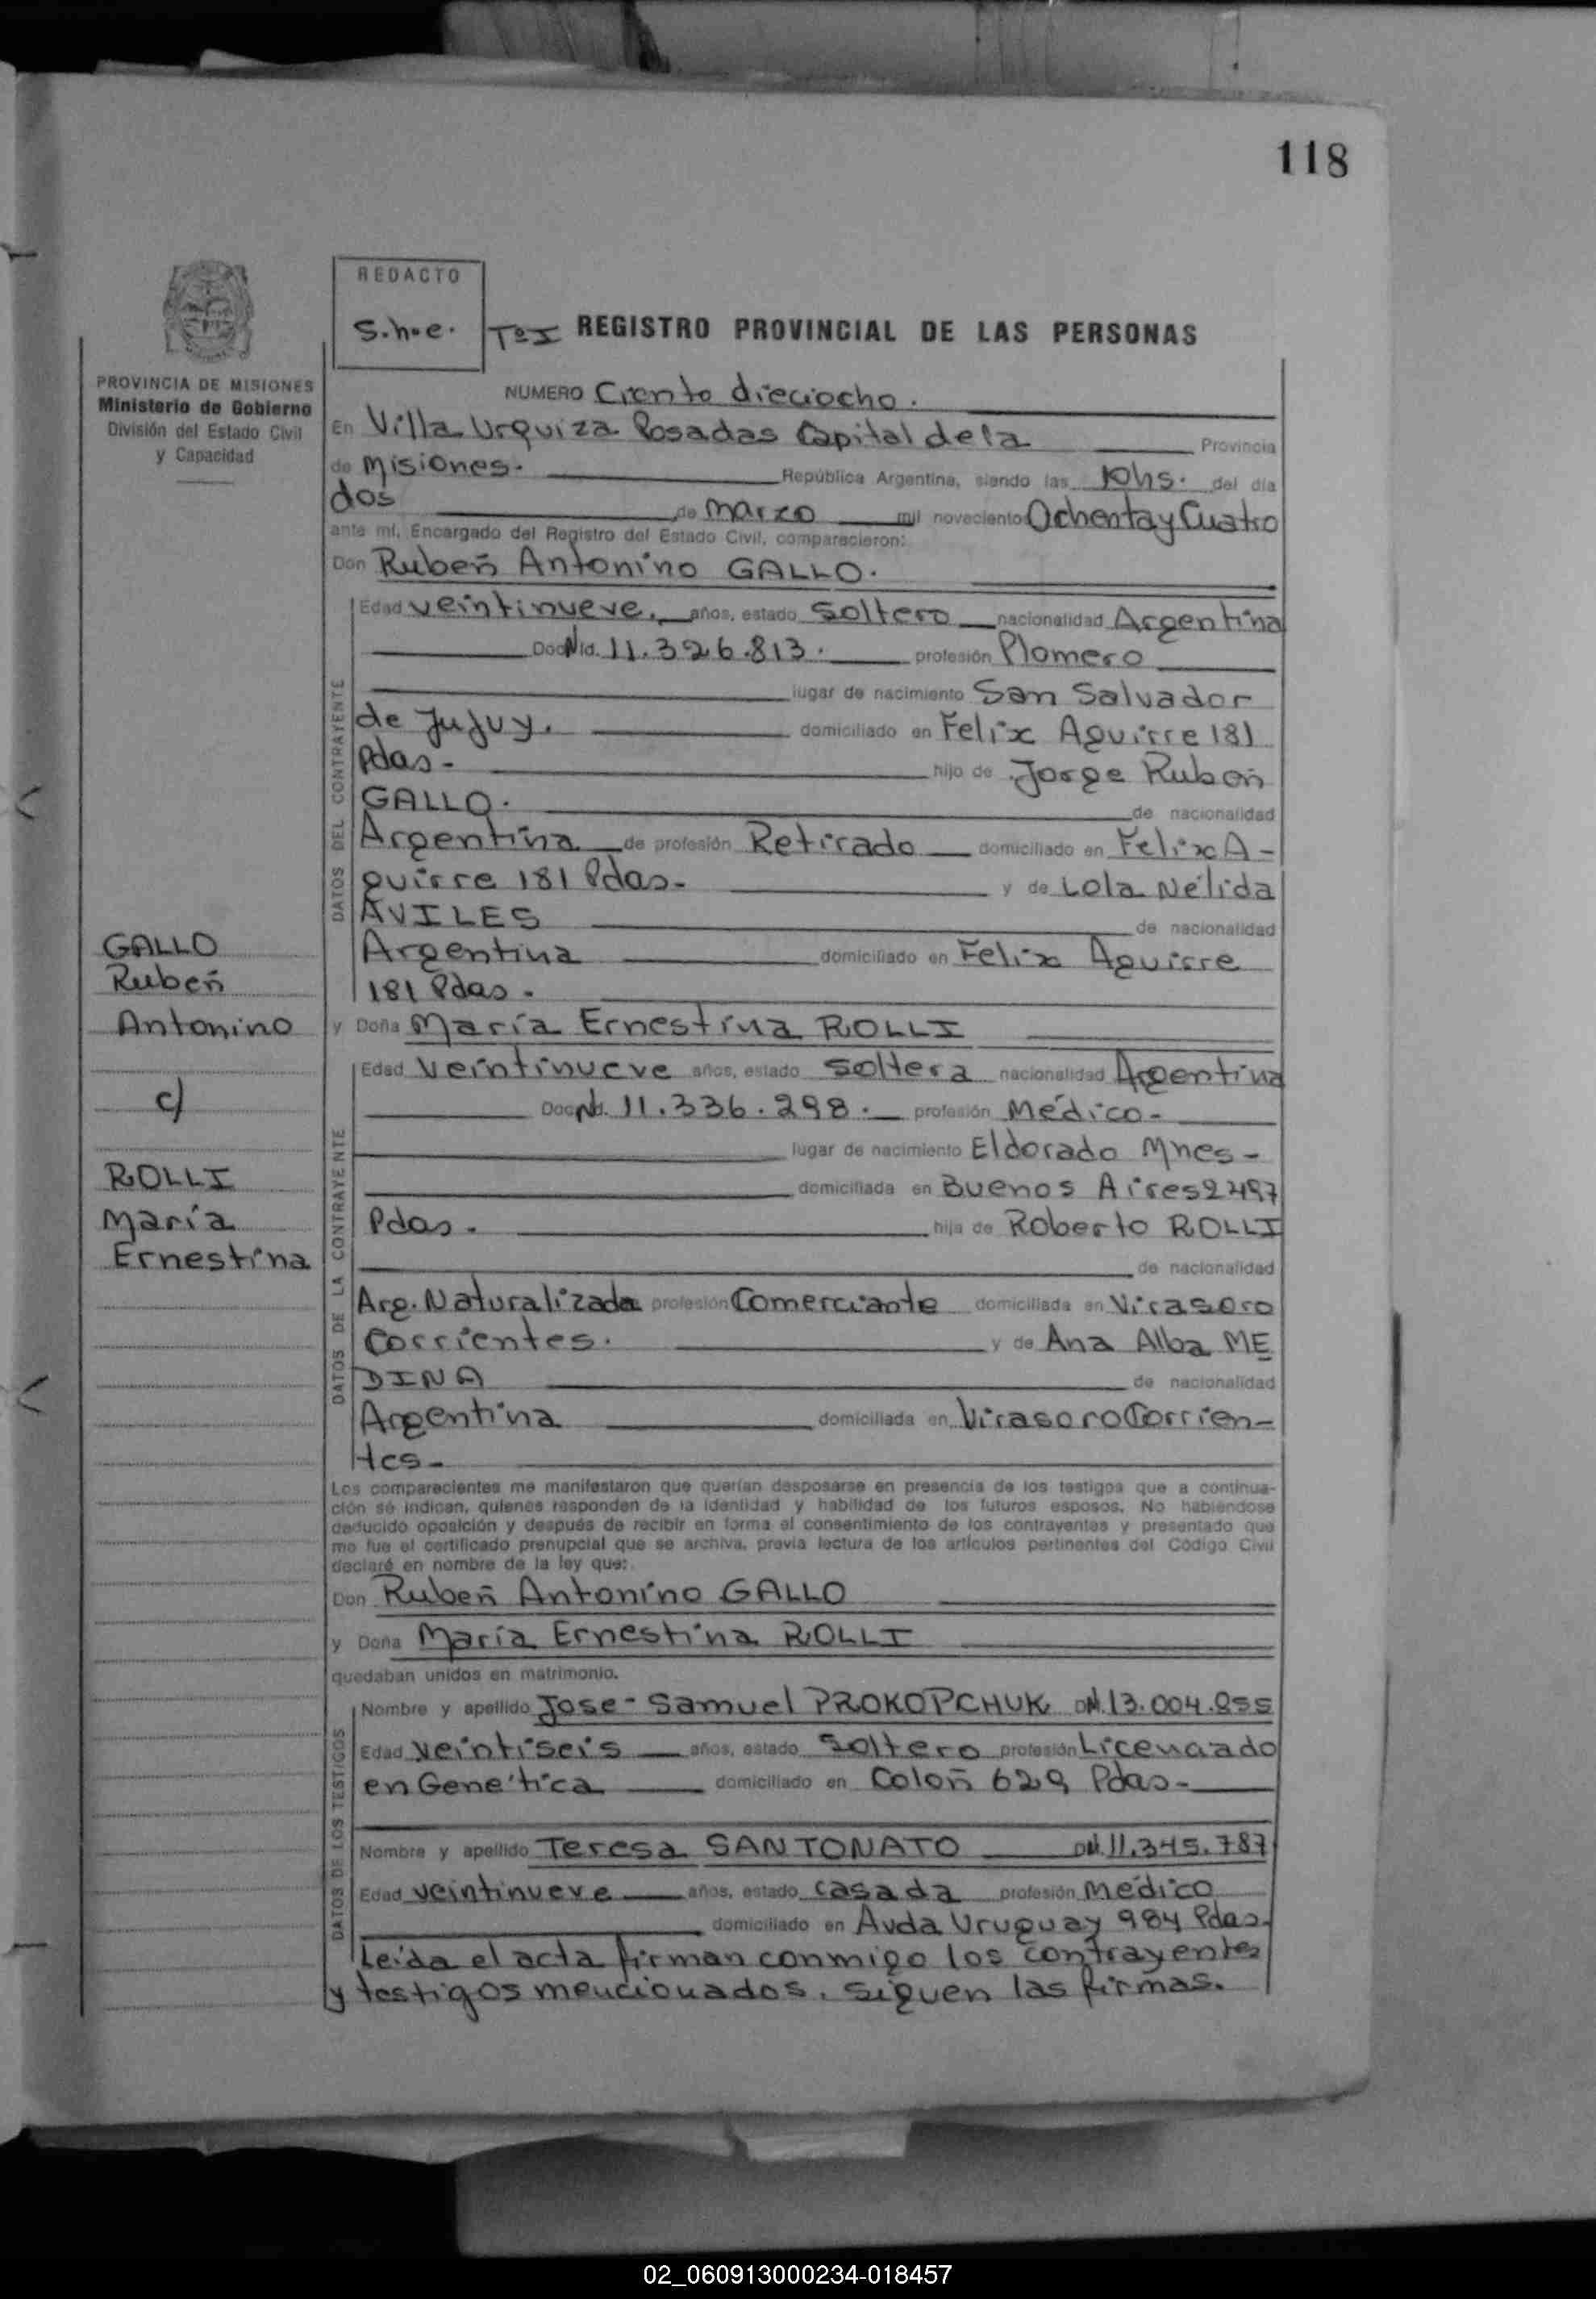 118
REDACTO
S.h.e.
Tº I REGISTRO PROVINCIAL DE LAS PERSONAS
PROVINCIA DE MISIONES
Ministerio de Gobierno
División del Estado Civil
y Capacidad
NUMERO Ciento dieciocho.
En Villa Urquiza Posadas Capital de la Provincia
de Misiones. República Argentina, siendo las 10hs. del día
dos de marzo mil novecientos Ochenta y Cuatro
ante mí, Encargado del Registro del Estado Civil, comparecieron:
Don Rubén Antonino GALLO.
DATOS DEL CONTRAYENTE
Edad veintinueve. años, estado Soltero nacionalidad Argentina
Doc. Nº Id. 11.326.813. profesión Plomero
lugar de nacimiento San Salvador
de Jujuy. domiciliado en Felix Aguirre 181
Pdas- hijo de Jorge Rubén
GALLO. de nacionalidad
Argentina de profesión Retirado domiciliado en Felix A-
guirre 181 Pdas- y de Lola Nélida
AVILES de nacionalidad
Argentina domiciliado en Felix Aguirre
181 Pdas.
GALLO
Rubén
Antonino
c/
ROLLI
María
Ernestina
y Doña María Ernestina ROLLI
DATOS DE LA CONTRAYENTE
Edad veintinueve años, estado soltera nacionalidad Argentina
Doc. Nd. 11.336.298. profesión Médico-
lugar de nacimiento Eldorado Mnes-
domiciliada en Buenos Aires 2497
Pdas. hija de Roberto ROLLI
de nacionalidad
Arg. Naturalizada profesión Comerciante domiciliada en Virasoro
Corrientes. y de Ana Alba ME
DINA de nacionalidad
Argentina domiciliada en Virasoro Corrien-
tes-
Los comparecientes me manifestaron que querían desposarse en presencia de los testigos que a continua-
ción se indican, quienes responden de la identidad y habilidad de los futuros esposos. No habiéndose
deducido oposición y después de recibir en forma el consentimiento de los contrayentes y presentado que
me fue el certificado prenupcial que se archiva, previa lectura de los artículos pertinentes del Código Civil
declaré en nombre de la ley que:
Don Rubén Antonino GALLO
y Doña María Ernestina ROLLI
quedaban unidos en matrimonio.
DATOS DE LOS TESTIGOS
Nombre y apellido Jose- Samuel PROKOPCHUK DNI. 13.004.855
Edad veintiseis años, estado Soltero profesión Licenciado
en Genética domiciliado en Colón 629 Pdas-
Nombre y apellido Teresa SANTONATO DNI. 11.345.787
Edad veintinueve años, estado casada profesión Médico
domiciliado en Avda Uruguay 984 Pdas.
Leída el acta firman conmigo los contrayentes
y testigos mencionados. Siguen las firmas.
02_060913000234-018457